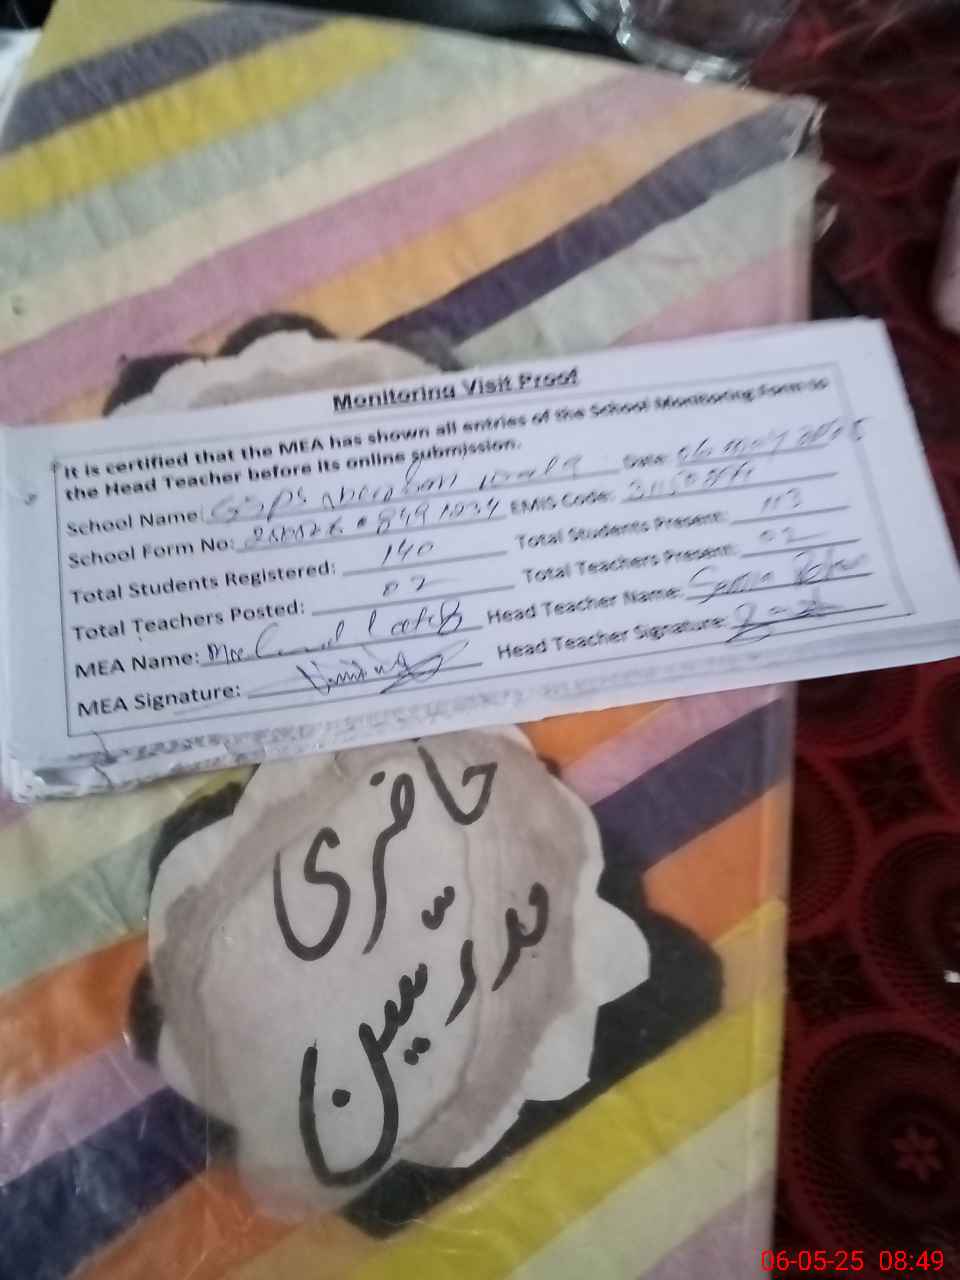 Monitoring Visit Proof
It is certified that the MEA has shown all entries of the School Monitoring Form to
the Head Teacher before its online submission.
School Name: GGPS Date: 06 may 2025
School Form No: EMIS Code:
Total Students Registered: 140 Total Students Present: 113
Total Teachers Posted: 02 Total Teachers Present: 02
MEA Name: Head Teacher Name:
MEA Signature: Head Teacher Signature:
حاضری
مدرسین
06-05-25 08:49